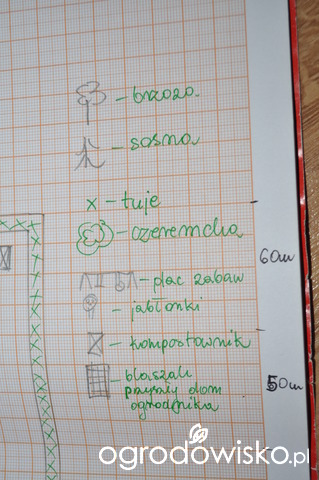 - brzoza
- sosna
x - tuje
- czeremcha
60m
- plac zabaw
- jabłonki
- kompostownik
- blaszak
przyszły dom
ogrodnika
50m
ogrodowisko.pl